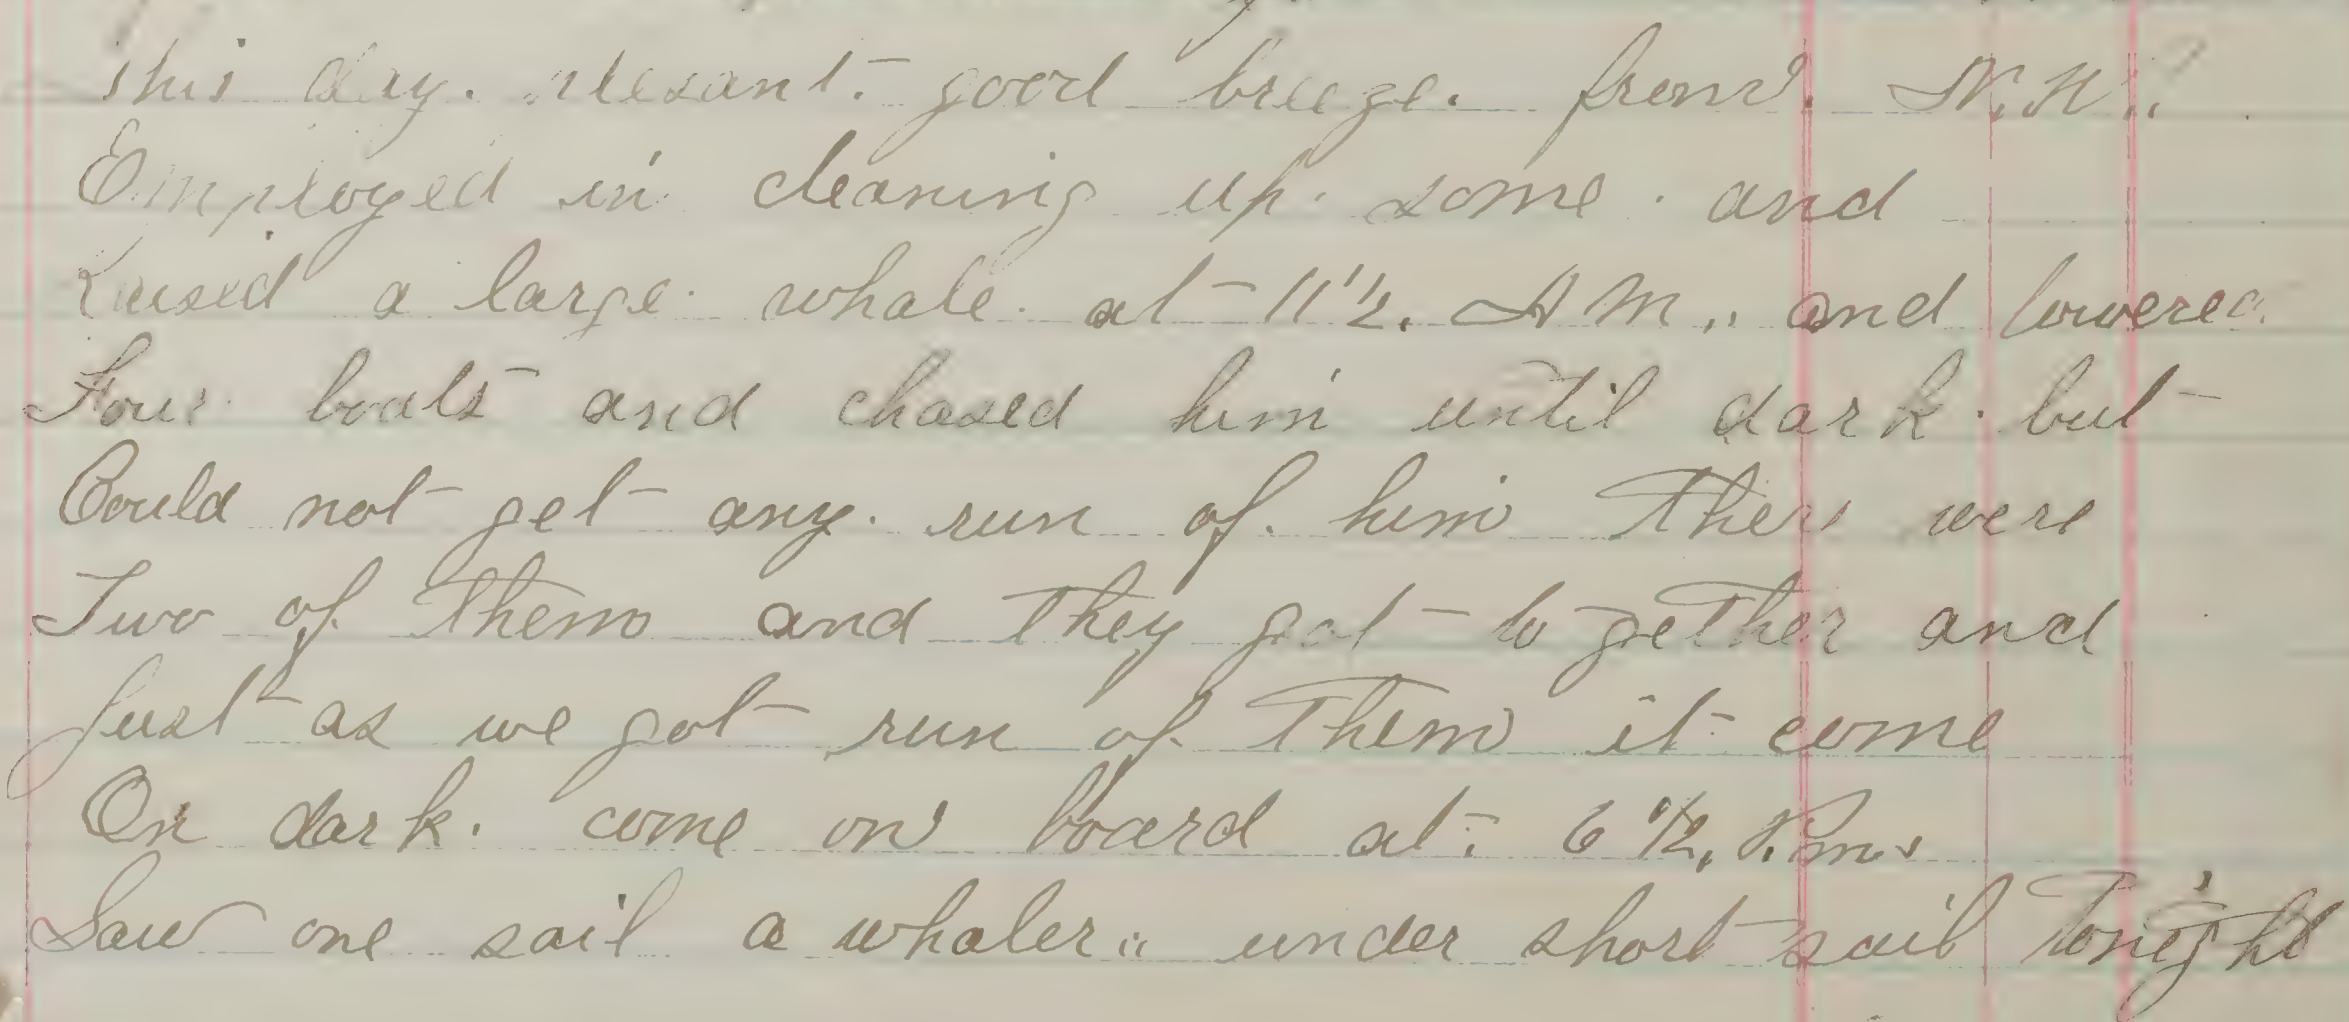 This day. plesant. good breeze. from. N.W..
Employed in cleaning up. some. and
Raised a large. whale. at 11 1/2. A M.. and lowered
Four boats and chased him until dark. but
Could not get any. run of. him There were
Two of. them and they got to gether and
Just as we got run of. them it come
On dark. come on board at. 6 1/2. P.m..
Saw one sail a whaler.. under short sail tonight